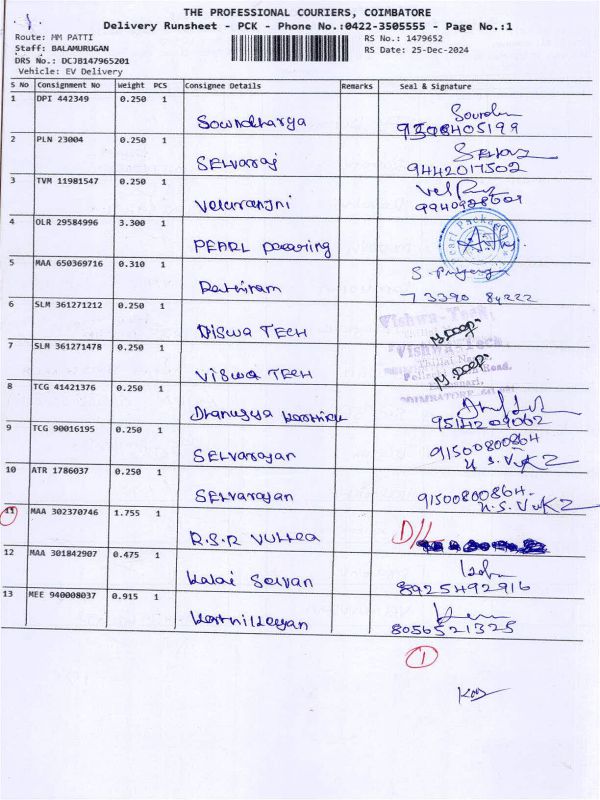 THE PROFESSIONAL COURIERS, COIMBATORE
Delivery Runsheet - PCK - Phone No.:0422-3505555 - Page No.:1
Route: MM PATTI RS No.: 1479652
Staff: BALAMURUGAN RS Date: 25-Dec-2024
DRS No.: DCJB147965201
Vehicle: EV Delivery
S No Consignment No Weight PCS Consignee Details Remarks Seal & Signature
1 DPI 442349 0.250 1
Soundharya
2 PLN 23004 0.250 1
SELVaraj 9442017502
3 TVM 11981547 0.250 1
4 OLR 29584996 3.300 1
PEARL
5 MAA 650369716 0.310 1
Rathiram 73390 84222
6 SLM 361271212 0.250 1
Viswa TECH
7 SLM 361271478 0.250 1
Vishwa-Tech,
Viswa TECH
8 TCG 41421376 0.250 1
9514209062
9 TCG 90016195 0.250 1
SELVarayan 91500800864
10 ATR 1786037 0.250 1
SELVarayan 91500800864
11 MAA 302370746 1.755 1
R.S.R D/L
12 MAA 301842907 0.475 1
Kalai Selvan 8925492916
13 MEE 940008037 0.915 1
8056521325
1